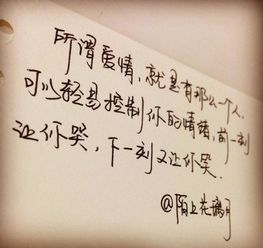 所谓爱情，就是有那么一个人，
可以轻易控制你的情绪，前一刻
让你哭，下一刻又让你笑．
@陌上花璃月